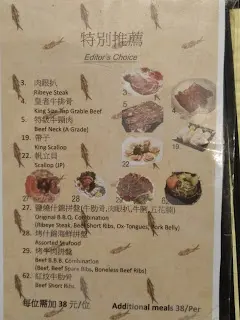 特別推薦
Editor's Choice
3. 肉眼扒
Ribeye Steak
4. 皇者牛排骨
King Size Top Grable Beef
5. 特級牛頸肉
Beef Neck (A Grade)
19. 帶子
King Scallop
22. 帆立貝
Scallop (JP)
3.
4.
5.
19.
22.
27.
28
29
62
27. 鹽燒什錦拼盤(牛肋骨,肉眼扒,牛脷,五花腩)
Original B.B.Q. Combination
(Ribeye Steak, Beef Short Ribs, Ox-Tongues, Pork Belly)
28. 燒什錦海鮮拼盤
Assorted Seafood
29. 燒牛肉拼盤
Beef B.B.B. Combination
(Beef, Beef Spare Ribs, Boneless Beef Ribs)
62. 紅炆牛肋骨
Beef Short Ribs
每位需加 38 元/位
Additional meals 38/Per